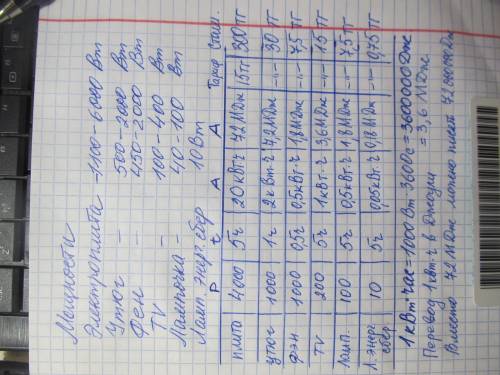 Мощности
Электроплита - 1100-6000 Вт
Утюг - 500-2000 Вт
Фен - 450-2000 Вт
TV - 100-400 Вт
Лампочка - 40-100 Вт
Ламп. энер. сбер 10 Вт
P t A A Тариф Стоим.
плита 4000 5ч 20кВт·ч 72МДж 15тг 300тг
утюг 1000 1ч 2кВт·ч 7,2МДж -//- 30тг
фэн 1000 0,5ч 0,5кВт·ч 1,8МДж -//- 7,5тг
TV 200 5ч 1кВт·ч 3,6МДж -//- 15тг
Ламп. 100 5ч 0,5кВт·ч 1,8МДж -//- 7,5тг
Л. энерг. сбер 10 5ч 0,05кВт·ч 0,8МДж -//- 0,75тг
1кВт·час=1000Вт·3600с=3600000Дж
Перевод 1квт·ч в Джоули = 3,6МДж
Вместо 72МДж можно писать 72000000Дж